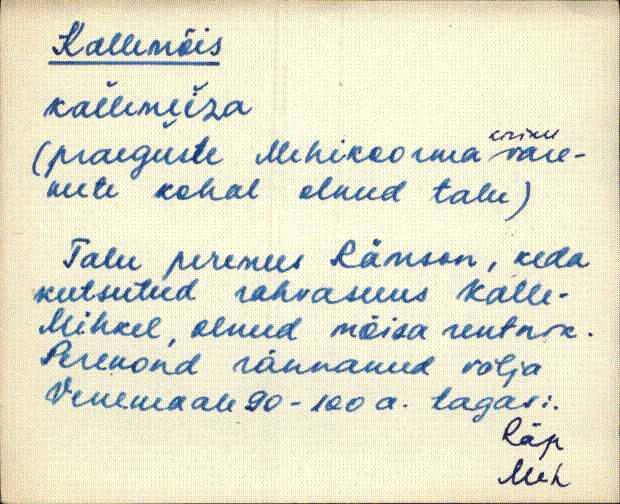 Kallemõis
kalleme͔i̬za
(praeguste Mehikoorma kiriku vare-
mete kohal olnud talu)
Talu peremees Rämson, keda
kutsutud rahvasuus Kalle-
Mihkel, olnud mõisa rentnik.
Perekond rännanud välja
Venemaale 90-100 a. tagasi.
Räp
Meh